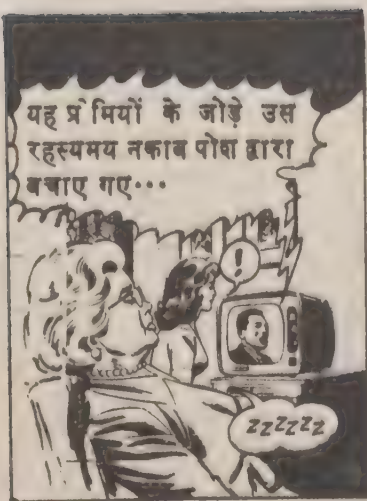 यह प्रेमियों के जोड़े उस
रहस्यमय नकाब पोश द्वारा
बचाए गए...
!
zzzzzz